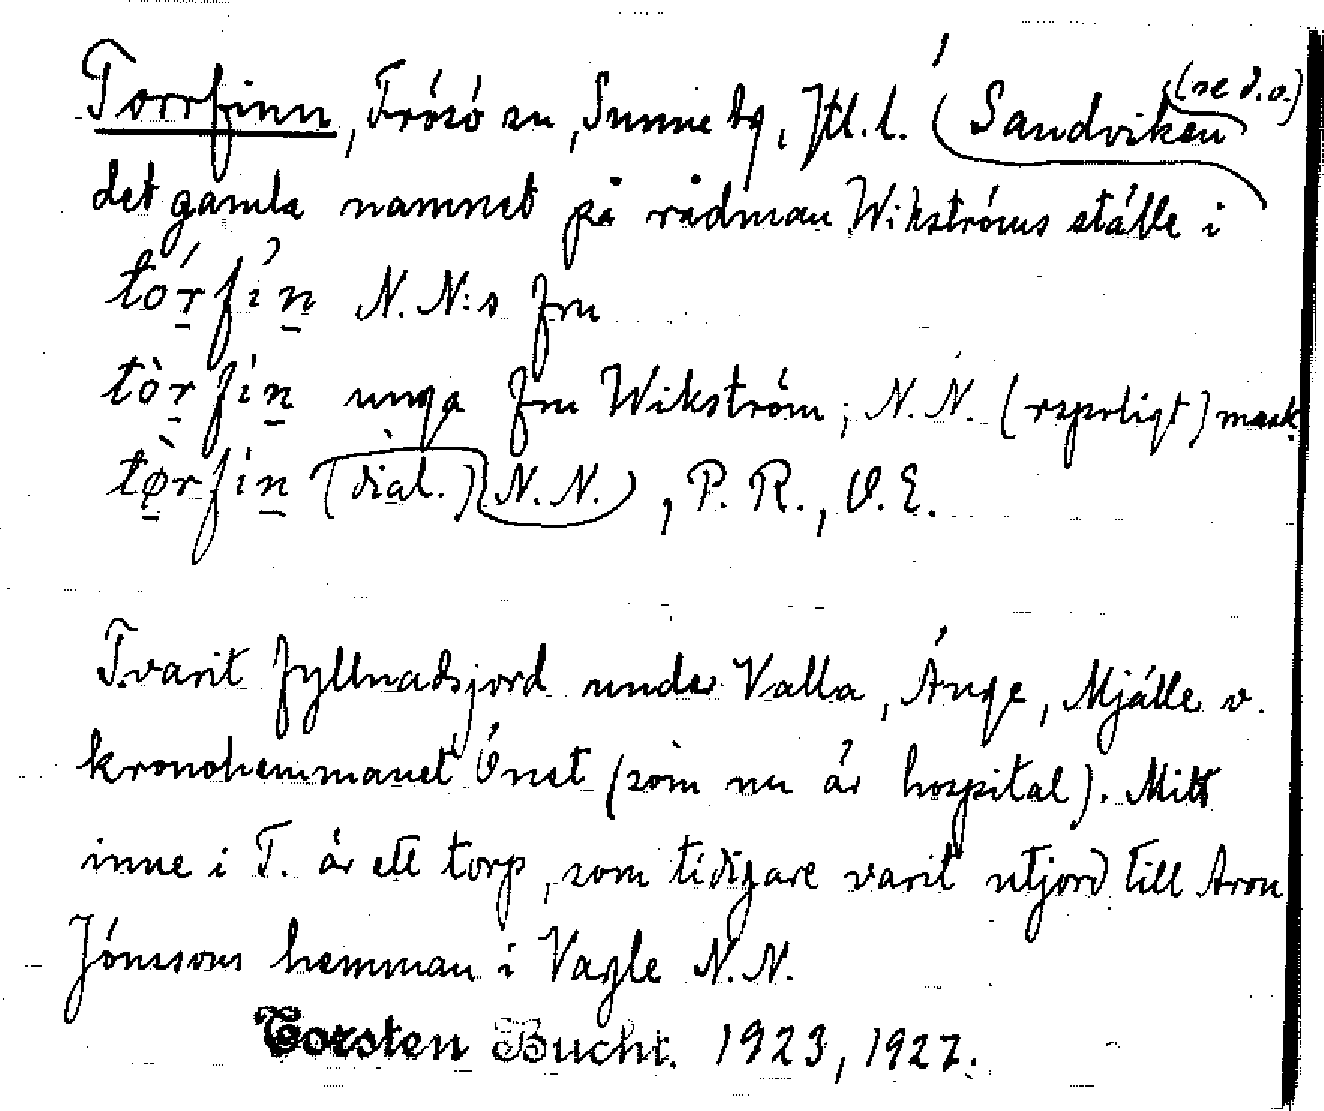 Torrfinn, Frösö sn, Sunne tg, Jtl.l. (Sandviken (se d.o.)
det gamla namnet på rådman Wikströms ställe i
tórfìn N.N:s fru
tòrfin unga fru Wikström, N.N. (rspråkligt) mask.
tø̀rfin (dial.) (N.N.), P.R., O.E.
Tvarit fyllnadsjord under Valla, Änge, Mjälle v.
kronohemmanet Önet (som nu är hospital). Mitt
inne i T. är ett torp, som tidigare varit utjord till Aron
Jönssons hemman i Vagle N.N.
Torsten Bucht. 1923, 1927.